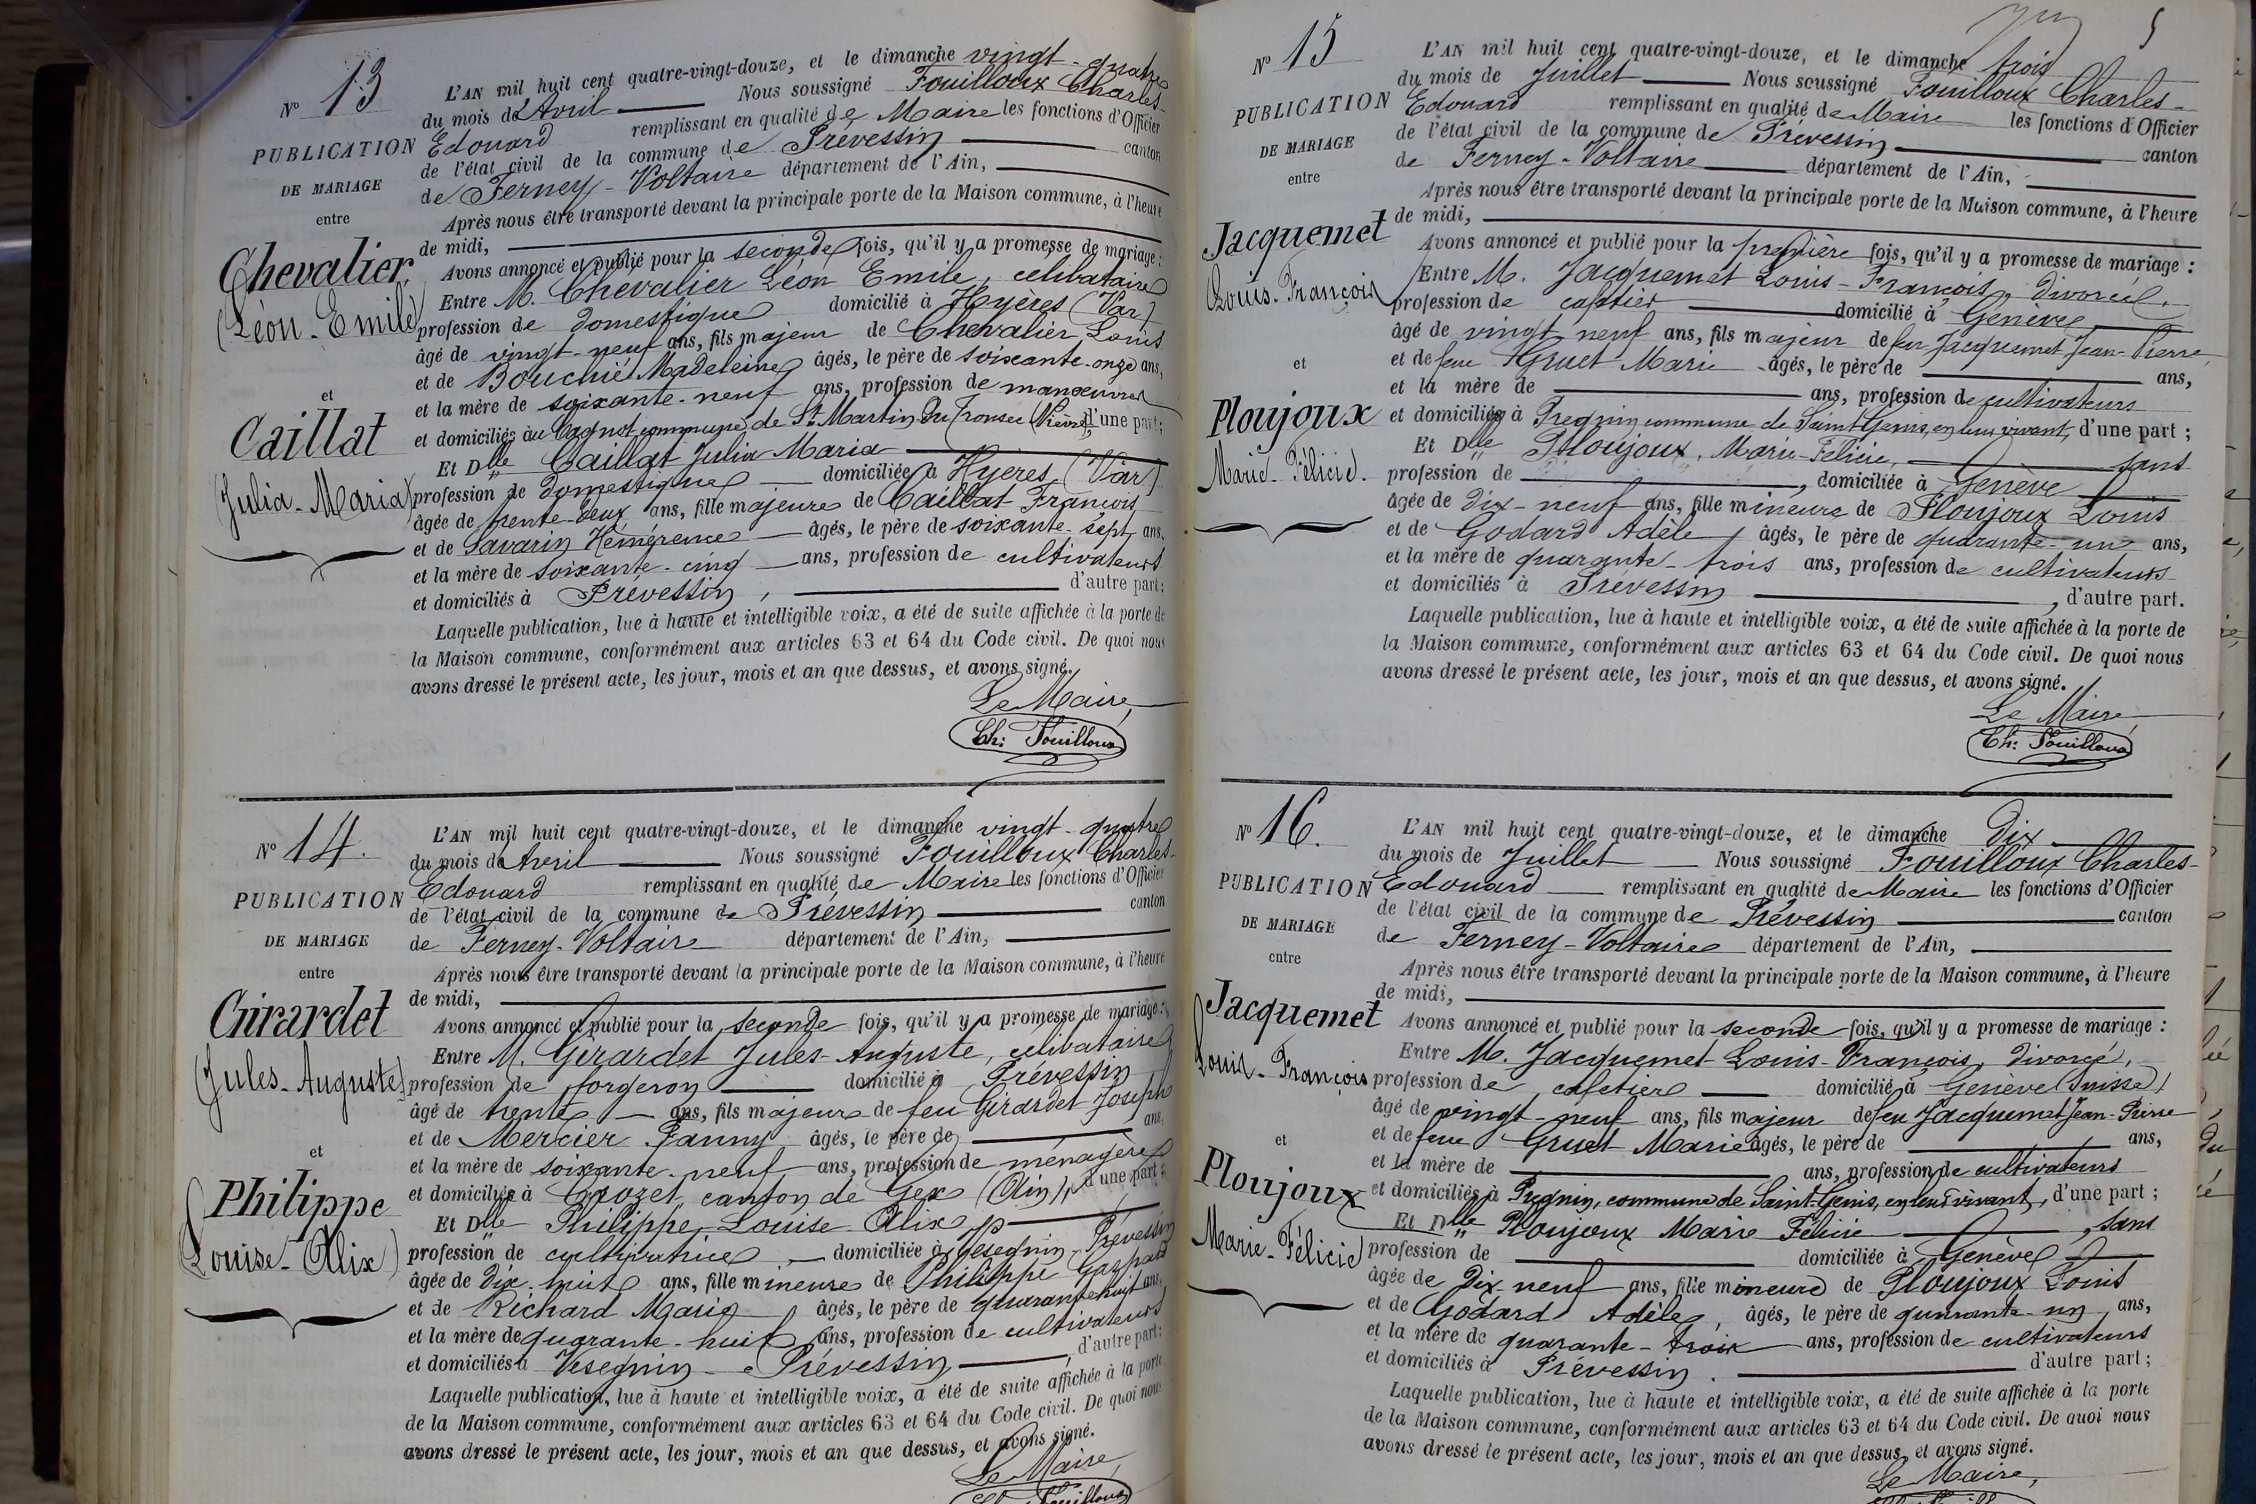 N° 13
PUBLICATION
DE MARIAGE
entre
Chevalier
(Léon-Emile)
et
Caillat
(Julia-Maria)
L'AN mil huit cent quatre-vingt-douze, et le dimanche vingt-quatre
du mois d'Avril Nous soussigné Fouilloux Charles-
Edouard remplissant en qualité de Maire les fonctions d'Officier
de l'état civil de la commune de Prévessin canton
de Ferney-Voltaire département de l'Ain,
Après nous être transporté devant la principale porte de la Maison commune, à l'heure
de midi,
Avons annoncé et publié pour la seconde fois, qu'il y a promesse de mariage :
Entre M. Chevalier Léon Emile, célibataire
profession de domestique domicilié à Hyères (Var)
âgé de vingt-neuf ans, fils majeur de Chevalier Louis
et de Bouchié Madeleine âgés, le père de soixante-onze ans,
et la mère de soixante-neuf ans, profession de manœuvres
et domiciliés au commune de St Martin du (Nièvre), d'une part ;
Et Dlle Caillat Julia Maria
profession de domestique domiciliée à Hyères (Var)
âgée de trente-deux ans, fille majeure de Caillat François
et de Savarin Hémérence âgés, le père de soixante-sept ans,
et la mère de soixante-cinq ans, profession de cultivateurs
et domiciliés à Prévessin, d'autre part ;
Laquelle publication, lue à haute et intelligible voix, a été de suite affichée à la porte de
la Maison commune, conformément aux articles 63 et 64 du Code civil. De quoi nous
avons dressé le présent acte, les jour, mois et an que dessus, et avons signé.
Le Maire,
Ch: Fouilloux
N° 14.
PUBLICATION
DE MARIAGE
entre
Girardet
(Jules-Auguste)
et
Philippe
(Louise-Alix)
L'AN mil huit cent quatre-vingt-douze, et le dimanche vingt-quatre
du mois d'Avril Nous soussigné Fouilloux Charles-
Edouard remplissant en qualité de Maire les fonctions d'Officier
de l'état civil de la commune de Prévessin canton
de Ferney-Voltaire département de l'Ain,
Après nous être transporté devant la principale porte de la Maison commune, à l'heure
de midi,
Avons annoncé et publié pour la seconde fois, qu'il y a promesse de mariage :
Entre M. Girardet Jules-Auguste, célibataire
profession de forgeron domicilié à Prévessin
âgé de trente ans, fils majeur de feu Girardet Joseph
et de Mercier Fanny âgés, le père de ans,
et la mère de soixante-neuf ans, profession de ménagère
et domiciliés à Crozet, canton de Gex (Ain), d'une part ;
Et Dlle Philippe Louise Alix
profession de cultivatrice domiciliée à Vesegnin-Prévessin
âgée de dix-huit ans, fille mineure de Philippe Gaspard
et de Richard Marie âgés, le père de quarante-huit ans,
et la mère de quarante-huit ans, profession de cultivateurs
et domiciliés à Vesegnin-Prévessin, d'autre part ;
Laquelle publication, lue à haute et intelligible voix, a été de suite affichée à la porte
de la Maison commune, conformément aux articles 63 et 64 du Code civil. De quoi nous
avons dressé le présent acte, les jour, mois et an que dessus, et avons signé.
Le Maire,
Ch: Fouilloux
5
N° 15
PUBLICATION
DE MARIAGE
entre
Jacquemet
(Louis-François)
et
Ploujoux
Marie-Félicie.
L'AN mil huit cent quatre-vingt-douze, et le dimanche trois
du mois de Juillet Nous soussigné Fouilloux Charles-
Edouard remplissant en qualité de Maire les fonctions d'Officier
de l'état civil de la commune de Prévessin canton
de Ferney-Voltaire département de l'Ain,
Après nous être transporté devant la principale porte de la Maison commune, à l'heure
de midi,
Avons annoncé et publié pour la première fois, qu'il y a promesse de mariage :
Entre M. Jacquemet Louis-François, divorcé,
profession de domicilié à Genève,
âgé de vingt neuf ans, fils majeur de feu Jacquemet Jean-Pierre
et de feue Gruet Marie âgés, le père de ans,
et la mère de ans, profession de cultivateurs
et domiciliés à Pregnin commune de Saint-Genis, en leur vivant, d'une part ;
Et Dlle Ploujoux, Marie-Félicie, sans
profession de , domiciliée à Genève
âgée de dix-neuf ans, fille mineure de Ploujoux Louis
et de Godard Adèle, âgés, le père de quarante-un ans,
et la mère de quarante-trois ans, profession de cultivateurs
et domiciliés à Prévessin , d'autre part.
Laquelle publication, lue à haute et intelligible voix, a été de suite affichée à la porte de
la Maison commune, conformément aux articles 63 et 64 du Code civil. De quoi nous
avons dressé le présent acte, les jour, mois et an que dessus, et avons signé.
Le Maire,
Ch: Fouilloux
N° 16.
PUBLICATION
DE MARIAGE
entre
Jacquemet
(Louis-François
et
Ploujoux
Marie-Félicie)
L'AN mil huit cent quatre-vingt-douze, et le dimanche Dix
du mois de Juillet Nous soussigné Fouilloux Charles-
Edouard remplissant en qualité de Maire les fonctions d'Officier
de l'état civil de la commune de Prévessin canton
de Ferney-Voltaire département de l'Ain,
Après nous être transporté devant la principale porte de la Maison commune, à l'heure
de midi,
Avons annoncé et publié pour la seconde fois, qu'il y a promesse de mariage :
Entre M. Jacquemet Louis-François, divorcé,
profession de cafetier domicilié à Genève (Suisse)
âgé de vingt-neuf ans, fils majeur de feu Jacquemet Jean-Pierre
et de feue Gruet Marie âgés, le père de ans,
et la mère de ans, profession de cultivateurs
et domiciliés à Pregnin, commune de Saint-Genis, en leur vivant, d'une part ;
Et Dlle Ploujoux Marie Félicie , sans
profession de domiciliée à Genève
âgée de dix-neuf ans, fille mineure de Ploujoux Louis
et de Godard Adèle, âgés, le père de quarante-un ans,
et la mère de quarante-trois ans, profession de cultivateurs
et domiciliés à Prévessin. d'autre part ;
Laquelle publication, lue à haute et intelligible voix, a été de suite affichée à la porte
de la Maison commune, conformément aux articles 63 et 64 du Code civil. De quoi nous
avons dressé le présent acte, les jour, mois et an que dessus, et avons signé.
Le Maire,